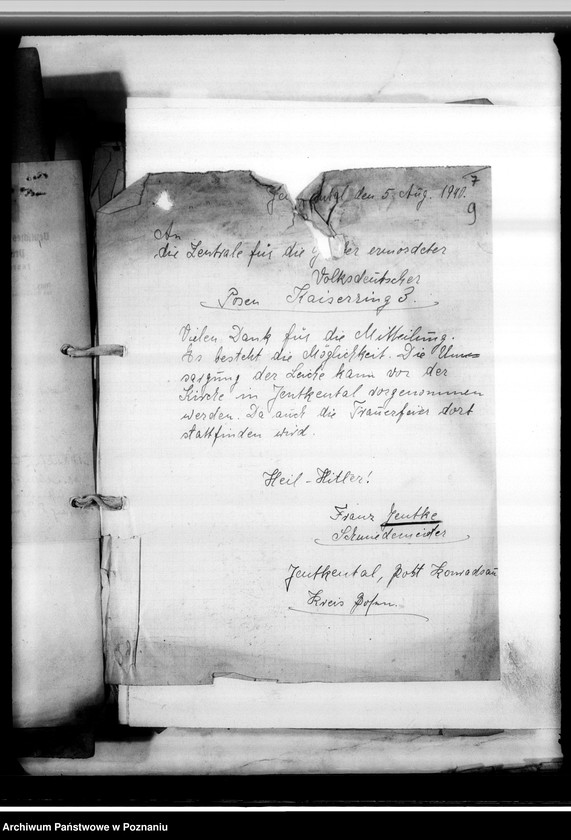 den 5. Aug. 1940.
7
9
An
die Zentrale für die der ermordeter
Volksdeutscher
Posen Kaiserring 3.
Vielen Dank für die Mitteilung.
Es besteht die Möglichkeit. Die Um=
sargung der Leiche kann vor der
Kirche in Jentkental vorgenommen
werden. Da auch die Trauerfeier dort
stattfinden wird.
Heil-Hitler!
Franz Jentke
Schmiedemeister
Jentkental, Post Konradsau
Kreis Posen.
Archiwum Państwowe w Poznaniu